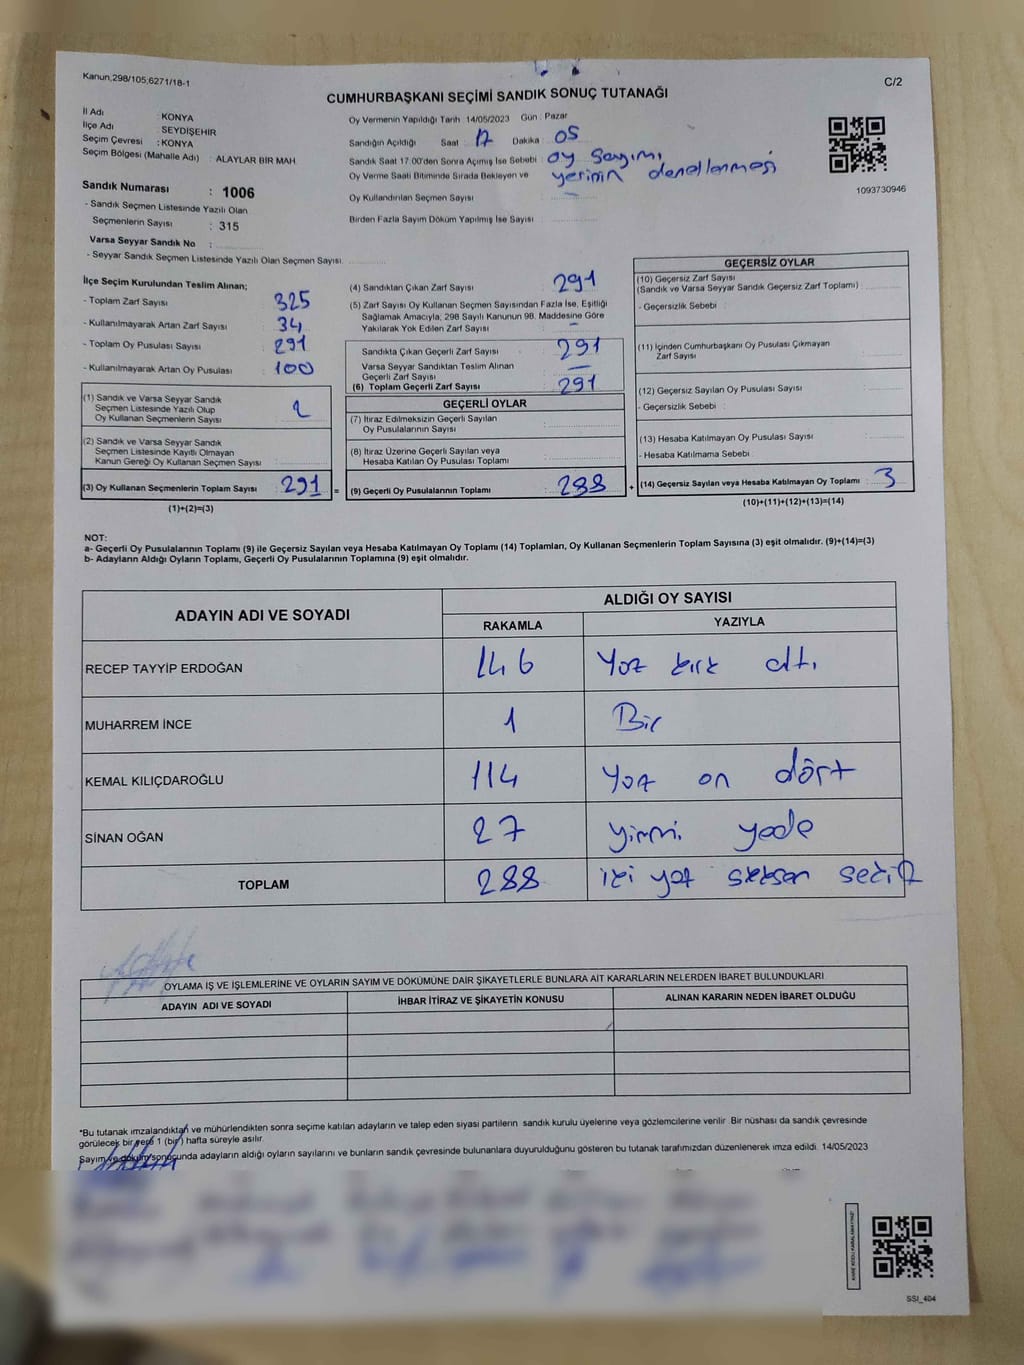 Kanun,298/105;6271/18-1
C/2
CUMHURBAŞKANI SEÇİMİ SANDIK SONUÇ TUTANAĞI
İl Adı : KONYA
İlçe Adı : SEYDİŞEHİR
Seçim Çevresi : KONYA
Seçim Bölgesi (Mahalle Adı) : ALAYLAR BİR MAH
Sandık Numarası : 1006
- Sandık Seçmen Listesinde Yazılı Olan
Seçmenlerin Sayısı : 315
Varsa Seyyar Sandık No :
- Seyyar Sandık Seçmen Listesinde Yazılı Olan Seçmen Sayısı:
Oy Vermenin Yapıldığı Tarih 14/05/2023 Gün : Pazar
Sandığın Açıldığı Saat : 17 Dakika : 05
Sandık Saat 17.00'den Sonra Açımış İse Sebebi : oy sayımı
Oy Verme Saati Bitiminde Sırada Bekleyen ve yerinin denetlenmesi
Oy Kullandırılan Seçmen Sayısı : —
Birden Fazla Sayım Döküm Yapılmış İse Sayısı :
1093730946
İlçe Seçim Kurulundan Teslim Alınan;
- Toplam Zarf Sayısı : 325
- Kullanılmayarak Artan Zarf Sayısı : 34
- Toplam Oy Pusulası Sayısı : 291
- Kullanılmayarak Artan Oy Pusulası : 100
(1) Sandık ve Varsa Seyyar Sandık
Seçmen Listesinde Yazılı Olup
Oy Kullanan Seçmenlerin Sayısı :
(2) Sandık ve Varsa Seyyar Sandık
Seçmen Listesinde Kayıtlı Olmayan
Kanun Gereği Oy Kullanan Seçmen Sayısı :
(3) Oy Kullanan Seçmenlerin Toplam Sayısı : 291 =
(1)+(2)=(3)
(4) Sandıktan Çıkan Zarf Sayısı : 291
(5) Zarf Sayısı Oy Kullanan Seçmen Sayısından Fazla İse, Eşitliği
Sağlamak Amacıyla; 298 Sayılı Kanunun 98. Maddesine Göre
Yakılarak Yok Edilen Zarf Sayısı : —
Sandıkta Çıkan Geçerli Zarf Sayısı : 291
Varsa Seyyar Sandıktan Teslim Alınan
Geçerli Zarf Sayısı : —
(6) Toplam Geçerli Zarf Sayısı : 291
GEÇERLİ OYLAR
(7) İtiraz Edilmeksizin Geçerli Sayılan
Oy Pusulalarının Sayısı :
(8) İtiraz Üzerine Geçerli Sayılan veya
Hesaba Katılan Oy Pusulası Toplamı :
(9) Geçerli Oy Pusulalarının Toplamı : 288 +
GEÇERSİZ OYLAR
(10) Geçersiz Zarf Sayısı
(Sandık ve Varsa Seyyar Sandık Geçersiz Zarf Toplamı) :
- Geçersizlik Sebebi :
(11) İçinden Cumhurbaşkanı Oy Pusulası Çıkmayan
Zarf Sayısı :
(12) Geçersiz Sayılan Oy Pusulası Sayısı :
- Geçersizlik Sebebi :
(13) Hesaba Katılmayan Oy Pusulası Sayısı :
- Hesaba Katılmama Sebebi :
(14) Geçersiz Sayılan veya Hesaba Katılmayan Oy Toplamı : 3
(10)+(11)+(12)+(13)=(14)
NOT:
a- Geçerli Oy Pusulalarının Toplamı (9) ile Geçersiz Sayılan veya Hesaba Katılmayan Oy Toplamı (14) Toplamları, Oy Kullanan Seçmenlerin Toplam Sayısına (3) eşit olmalıdır. (9)+(14)=(3)
b- Adayların Aldığı Oyların Toplamı, Geçerli Oy Pusulalarının Toplamına (9) eşit olmalıdır.
ADAYIN ADI VE SOYADI ALDIĞI OY SAYISI
RAKAMLA YAZIYLA
RECEP TAYYİP ERDOĞAN 146 Yüz kırk altı
MUHARREM İNCE 1 Bir
KEMAL KILIÇDAROĞLU 114 Yüz on dört
SİNAN OĞAN 27 yirmi yede
TOPLAM 288 iki yüz seksen sekiz
OYLAMA İŞ VE İŞLEMLERİNE VE OYLARIN SAYIM VE DÖKÜMÜNE DAİR ŞİKAYETLERLE BUNLARA AİT KARARLARIN NELERDEN İBARET BULUNDUKLARI
ADAYIN ADI VE SOYADI İHBAR İTİRAZ VE ŞİKAYETİN KONUSU ALINAN KARARIN NEDEN İBARET OLDUĞU
*Bu tutanak imzalandıktan ve mühürlendikten sonra seçime katılan adayların ve talep eden siyasi partilerin sandık kurulu üyelerine veya gözlemcilerine verilir. Bir nüshası da sandık çevresinde
görülecek bir yere 1 (bir) hafta süreyle asılır.
Sayım ve döküm sonucunda adayların aldığı oyların sayılarını ve bunların sandık çevresinde bulunanlara duyurulduğunu gösteren bu tutanak tarafımızdan düzenlenerek imza edildi. 14/05/2023
SSİ_404